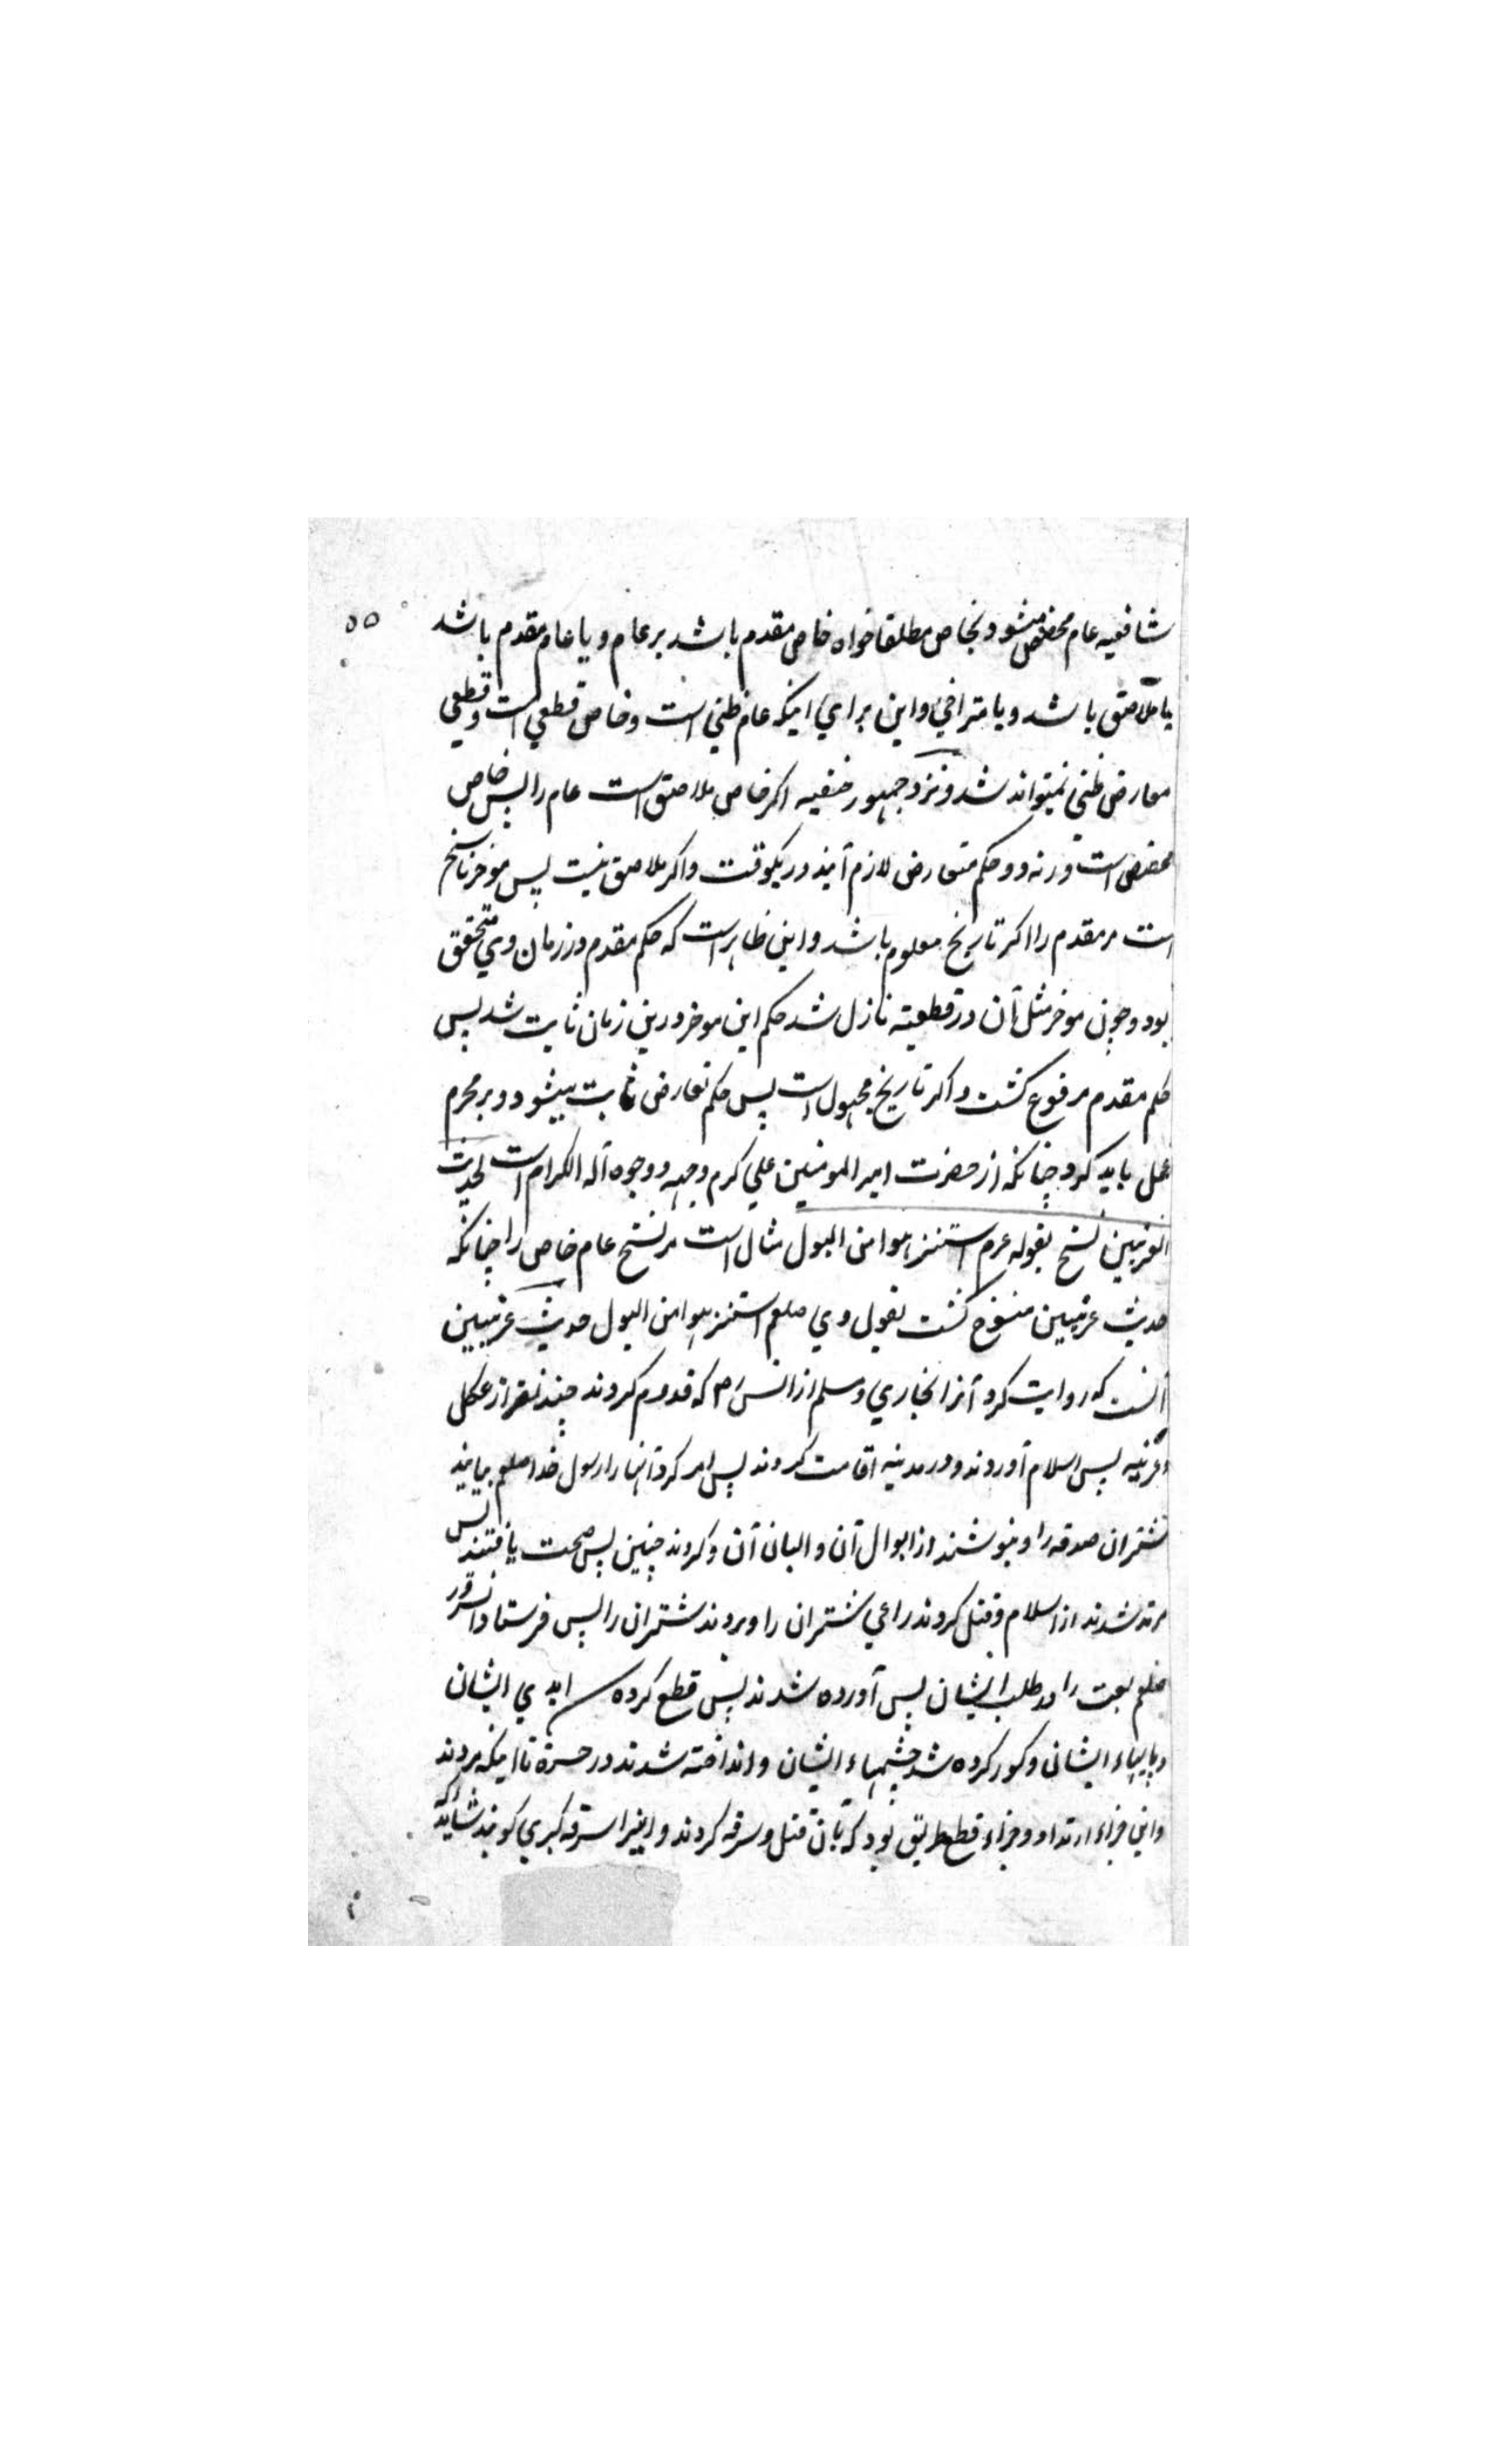 ۵۵
شافعیه عام مخصص میشود بخاص مطلقا خواه خاص مقدم باشد بر عام و یا عام مقدم باشد
یا ملاصق باشد و یا متراخی و این برای اینکه عام ظنی است و خاص قطعی است و قطعی
معارض ظنی نمیتواند شد و نزد جمهور حنفیه اکر خاص ملاصق است عام را پس خاص
مخصص است ورنه دو حکم متعارض لازم آیند در یکوقت و اکر ملاصق نیست پس موخر ناسخ
است مر مقدم را اکر تاریخ معلوم باشد و این ظاهر است که حکم مقدم در زمان وی متحقق
بود و چون موخر مثل آن در قطعیته نازل شد حکم این موخر درین زمان ثابت شد پس
حکم مقدم مرفوع کشت و اکر تاریخ مجهول است پس حکم تعارض ثابت میشود و بر محرم
عمل باید کرد چنانکه از حضرت امیر المومنین علی کرم وجهه و وجوه آله الکرام است لحدیث
العرنیین نسخ بقوله عرم استنزهوا من البول مثال است مر نسخ عام خاص را چنانکه
حدیث عرنیین منسوخ کشت بقول وی صلعم استنزهوا من البول حدیث عرنیین
آنست که روایت کرد آنرا بخاری و مسلم از انس رض که قدوم کردند چند نفر از عکل
و عرنیه پس اسلام آوردند و در مدینه اقامت کردند پس امر کرد آنها را رسول خدا صلعم بیایند
شتران صدقه را و بنوشند از ابوال آن و البان آن و کردند چنین پس صحت یافتند پس
مرتد شدند از اسلام و قتل کردند راعی شتران را و بردند شتران را پس فرستاد آنسرور
صلعم بعث را در طلب ایشان پس آورده شدند پس قطع کرده ایدی ایشان
و پایهاء ایشان و کور کرده شد چشمهاء ایشان و انداخته شدند در حره تا اینکه مردند
و این جزاء ارتداد و جزاء قطع طریق بود که بآن قتل و سرقه کردند و اینرا سرقه کبری کویند شاید که